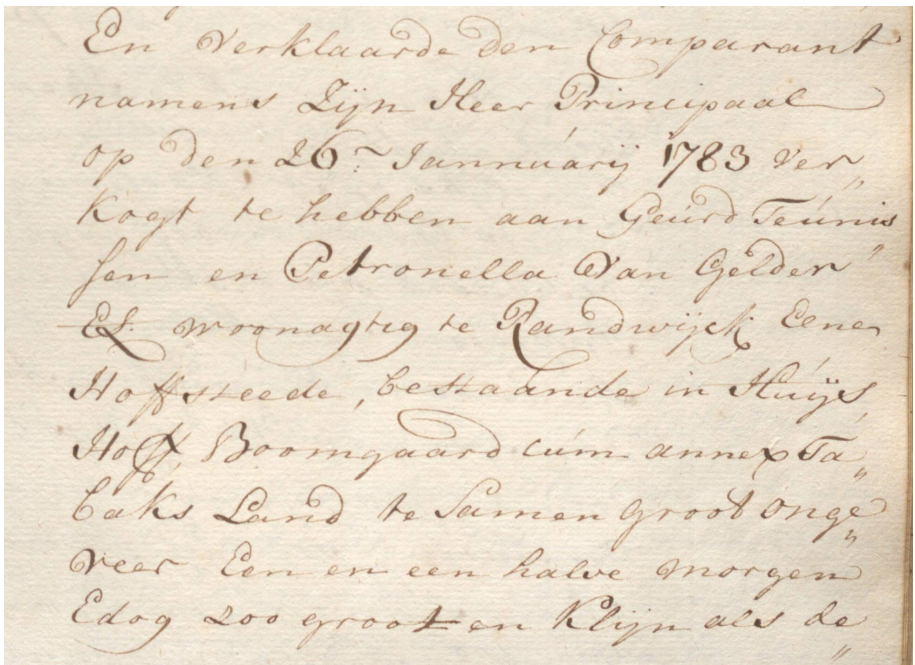 En Verklaarde den Comparant
namens Zijn Heer Principaal
op den 26.n Jannúarij 1783 ver„
kogt te hebben aan Geúrd Teúnis„
sen en Petronella Van Gelder
El. woonagtig te Randwijck Eene
Hoffsteede, bestaande in Húijs,
Hoff, Boomgaard cúm annex Ta„
baks Land te Samen groot onge„
veer Een en een halve morgen
Edog zoo groot en klijn als de„